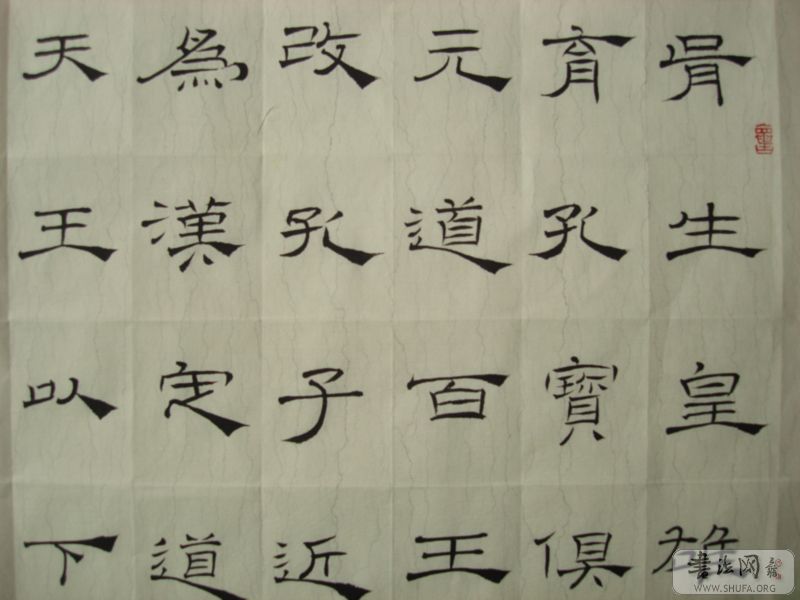 胥生皇雄
育孔寶俱
元道百王
改孔子近
爲漢定道
天王以下
书法网
WWW.SHUFA.ORG